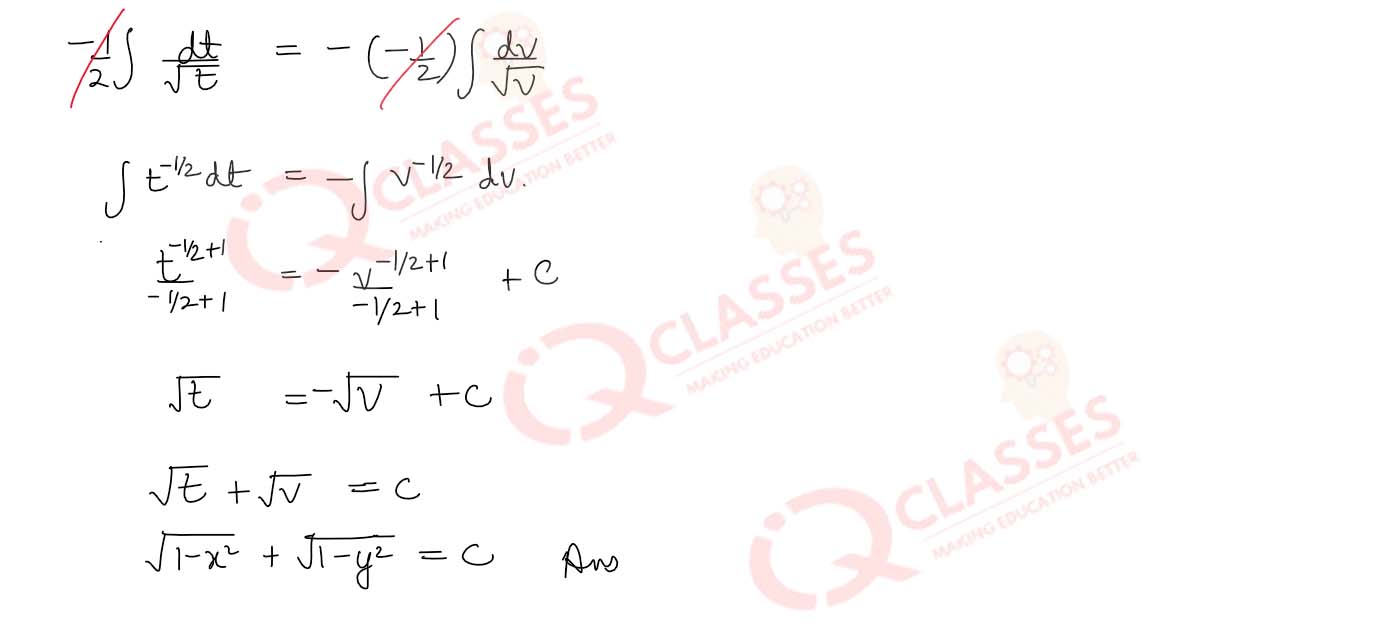 -1/2 ∫ dt/√t = -(-1/2) ∫ dv/√v
∫ t^-1/2 dt = -∫ v^-1/2 dv.
t^-1/2+1/-1/2+1 = - v^-1/2+1/-1/2+1 + C
√t = -√v + C
√t + √v = C
√1-x² + √1-y² = C Ans
iQ CLASSES
MAKING EDUCATION BETTER
iQ CLASSES
MAKING EDUCATION BETTER
iQ CLASSES
MAKING EDUCATION BETTER